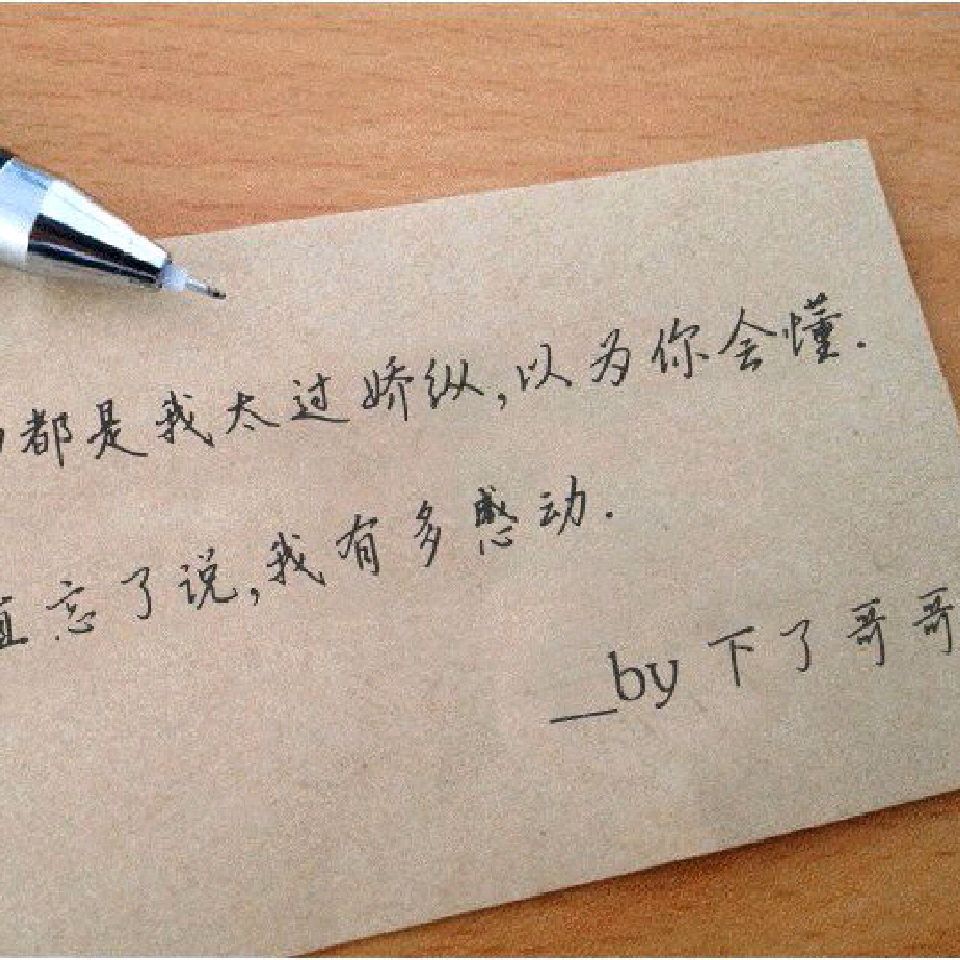 都是我太过娇纵,以为你会懂.
直忘了说,我有多感动.
__by 下了哥哥